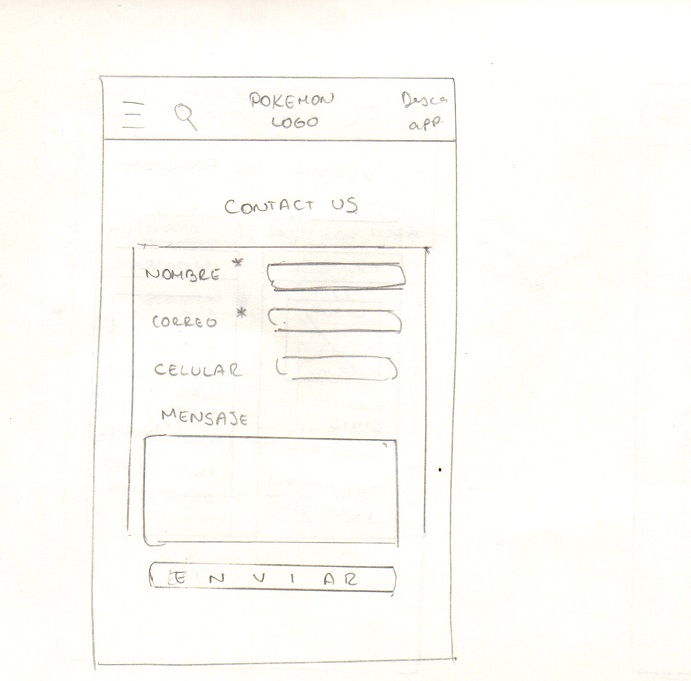 POKEMON
LOGO
Desca
app.
CONTACT US
NOMBRE *
CORREO *
CELULAR
MENSAJE
ENVIAR